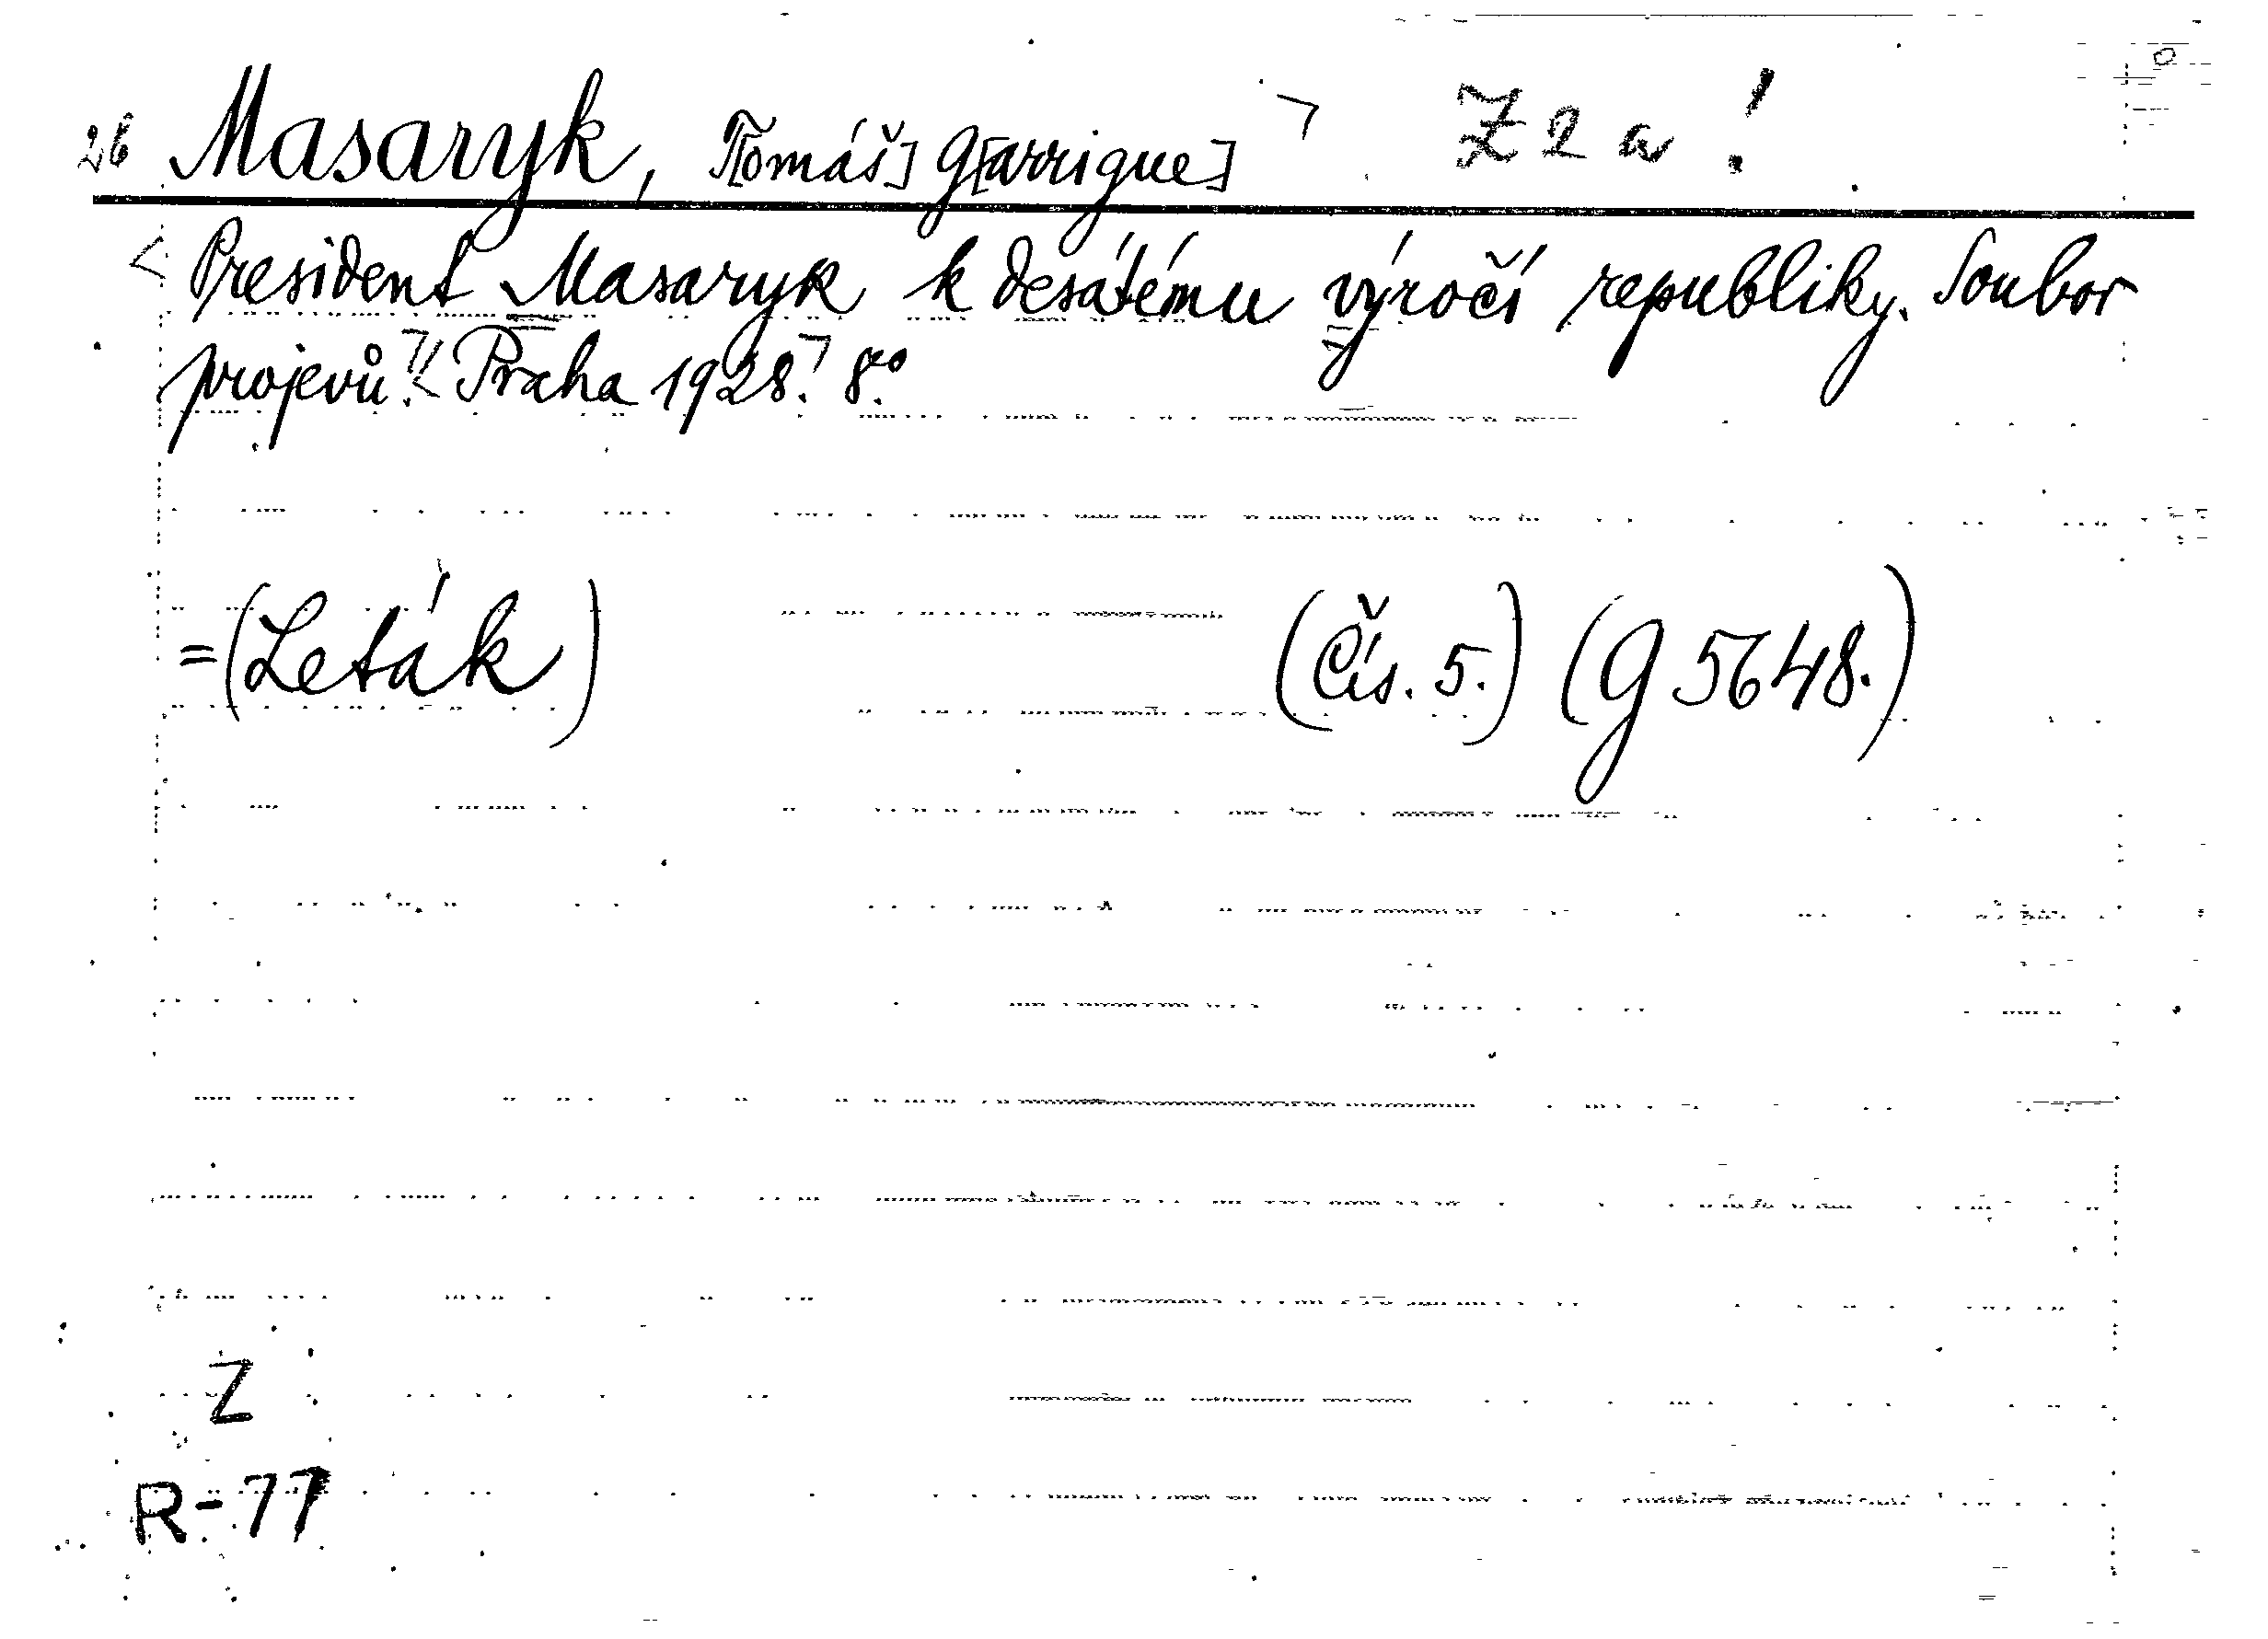 26 Masaryk, T[omáš] G[arrigue] Z 2 a!
President Masaryk k desátému výročí republiky. Soubor
projevů. Praha 1928. 8°.
=(Leták) (Čís. 5.) (G 5648.)
Z
R-77